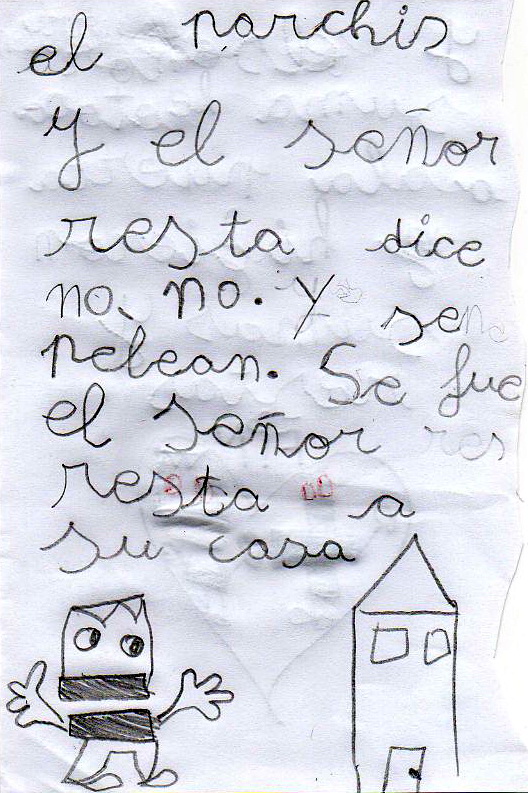 el parchis
Y el señor
resta dice
no, no. Y se
pelean. Se fue
el señor res
resta a
su casa